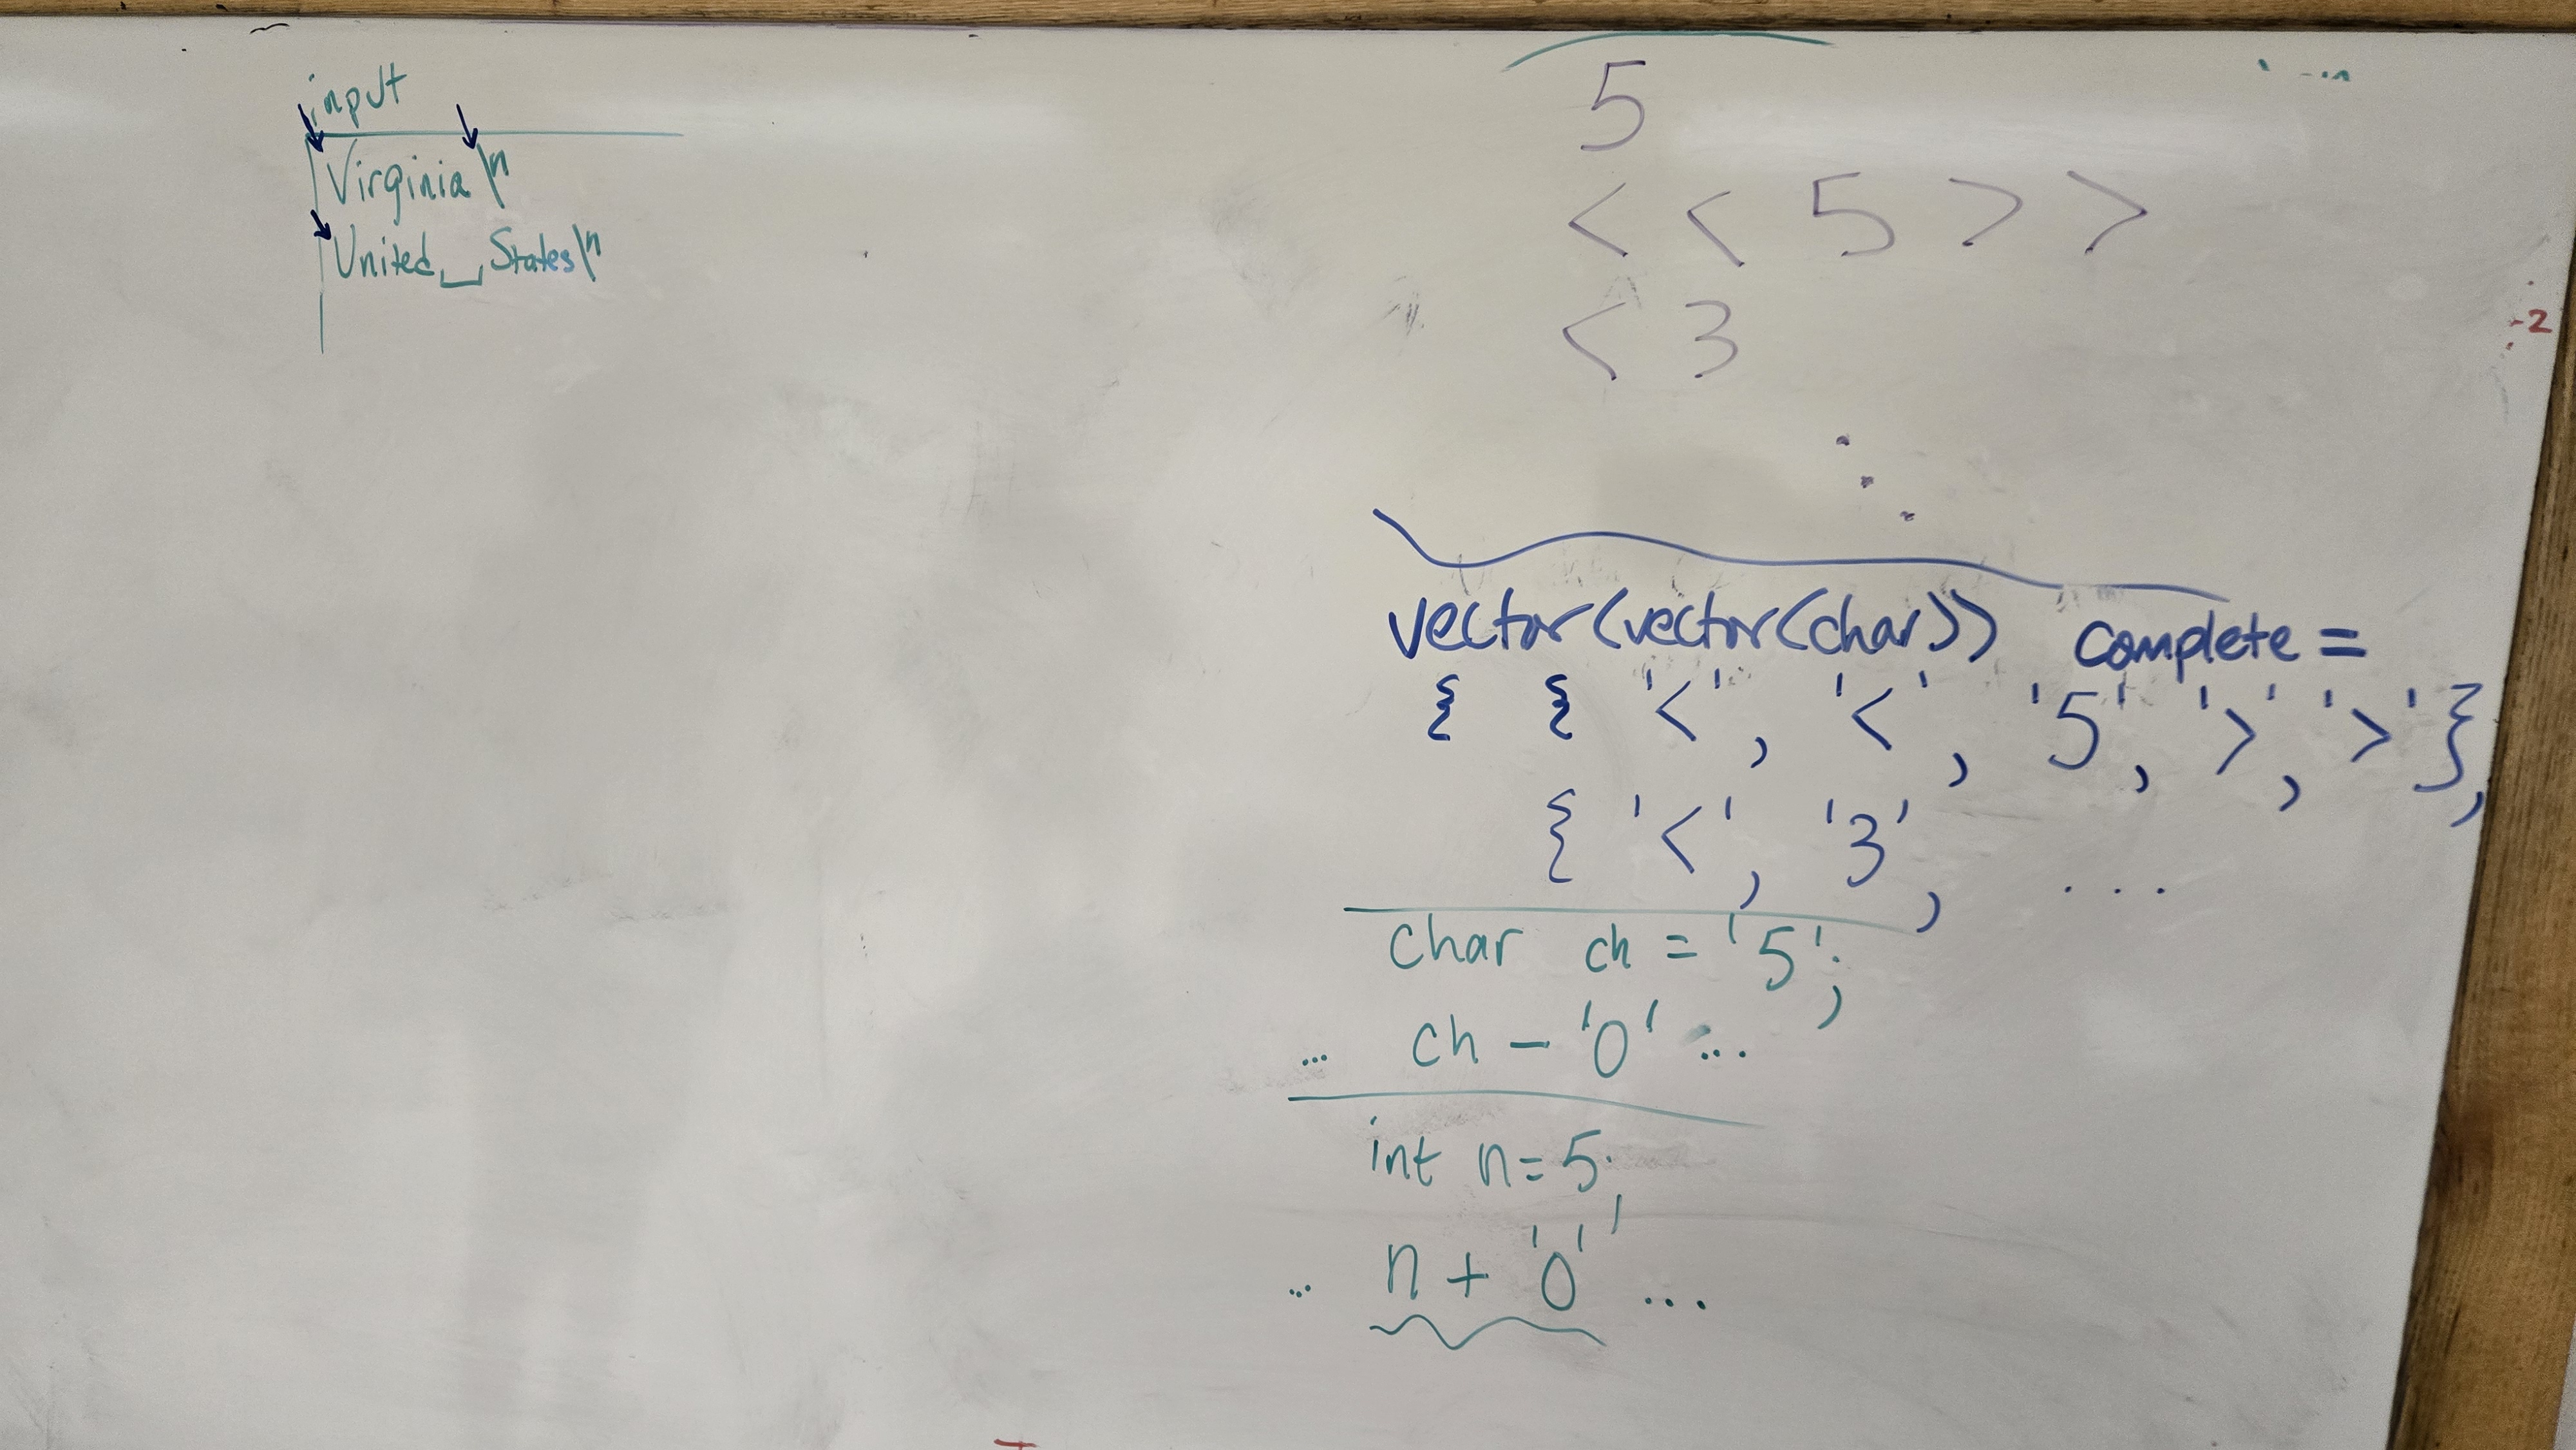 input
Virginia\n
United␣States\n
5
< < 5 > >
< 3
-2
vector<vector<char>> complete =
{ { '<', '<', '5', '>', '>' },
{ '<', '3', ...
char ch = '5';
... ch - '0' ...
int n=5;
... n + '0' ...